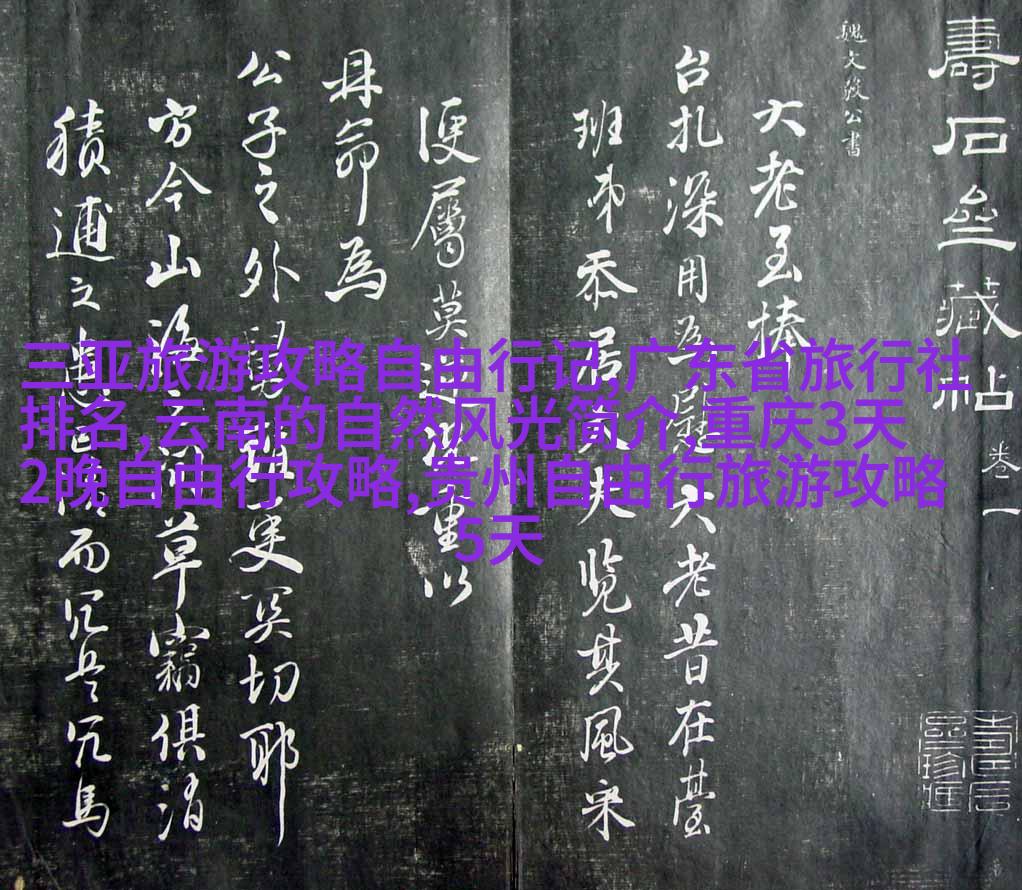 壽石壘藏帖
卷一
魏文毅公書
大老至捧
台扎深用
大老昔在臺
班弟忝居
夫覽其風采
便屬莫
重以
毋命為
公子之外
更奚切耶
方今山海
草竊俱消
積逋之
而冗兵冗馬
三亚旅游攻略自由行记,广东省旅行社
排名,云南的自然风光简介,重庆3天
2晚自由行攻略,贵州自由行旅游攻略
5天